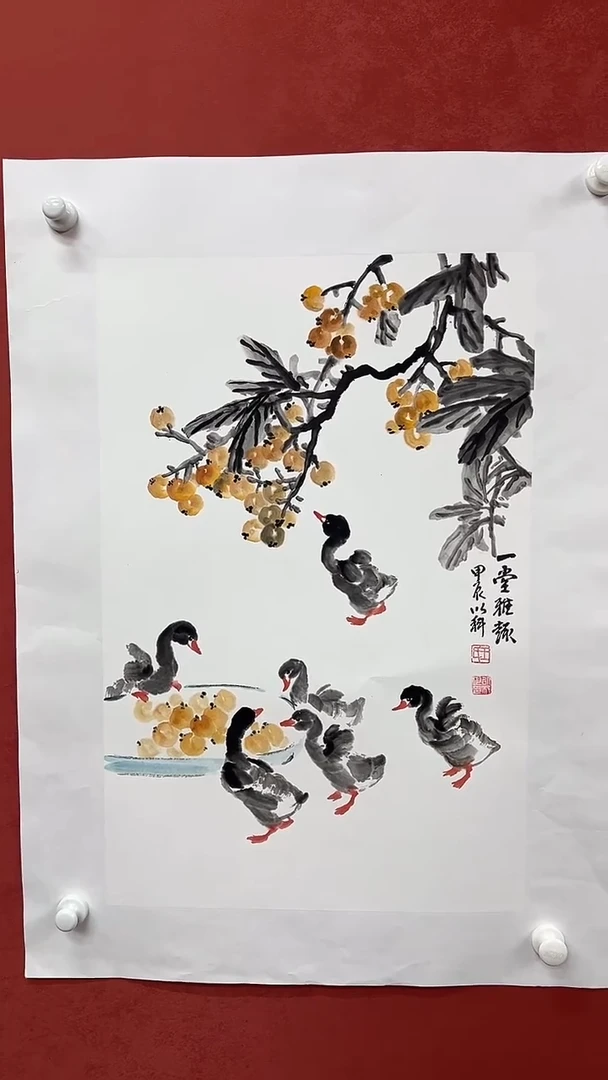 一堂雅趣
甲辰以科